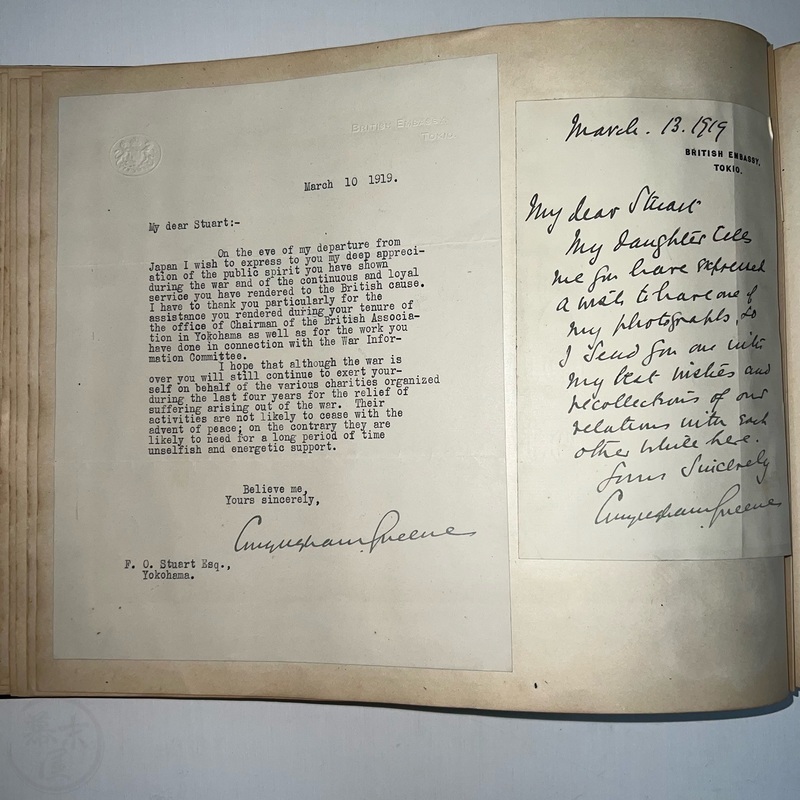 BRITISH EMBASSY
TOKIO.
March 10 1919.
My dear Stuart:-
On the eve of my departure from
Japan I wish to express to you my deep appreci-
ation of the public spirit you have shown
during the war and of the continuous and loyal
service you have rendered to the British cause.
I have to thank you particularly for the
assistance you rendered during your tenure of
the office of Chairman of the British Associa-
tion in Yokohama as well as for the work you
have done in connection with the War Infor-
mation Committee.
I hope that although the war is
over you will still continue to exert your-
self on behalf of the various charities organized
during the last four years for the relief of
suffering arising out of the war. Their
activities are not likely to cease with the
advent of peace; on the contrary they are
likely to need for a long period of time
unselfish and energetic support.
Believe me,
Yours sincerely,
Conyngham Greene
F. O. Stuart Esq.,
Yokohama.
March. 13. 1919
BRITISH EMBASSY,
TOKIO.
My dear Stuart
My daughter tells
me you have expressed
a wish to have one of
my photographs, so
I send you one with
my best wishes and
recollections of our
relations with each
other while here.
Yours Sincerely
Conyngham Greene
幕末屋